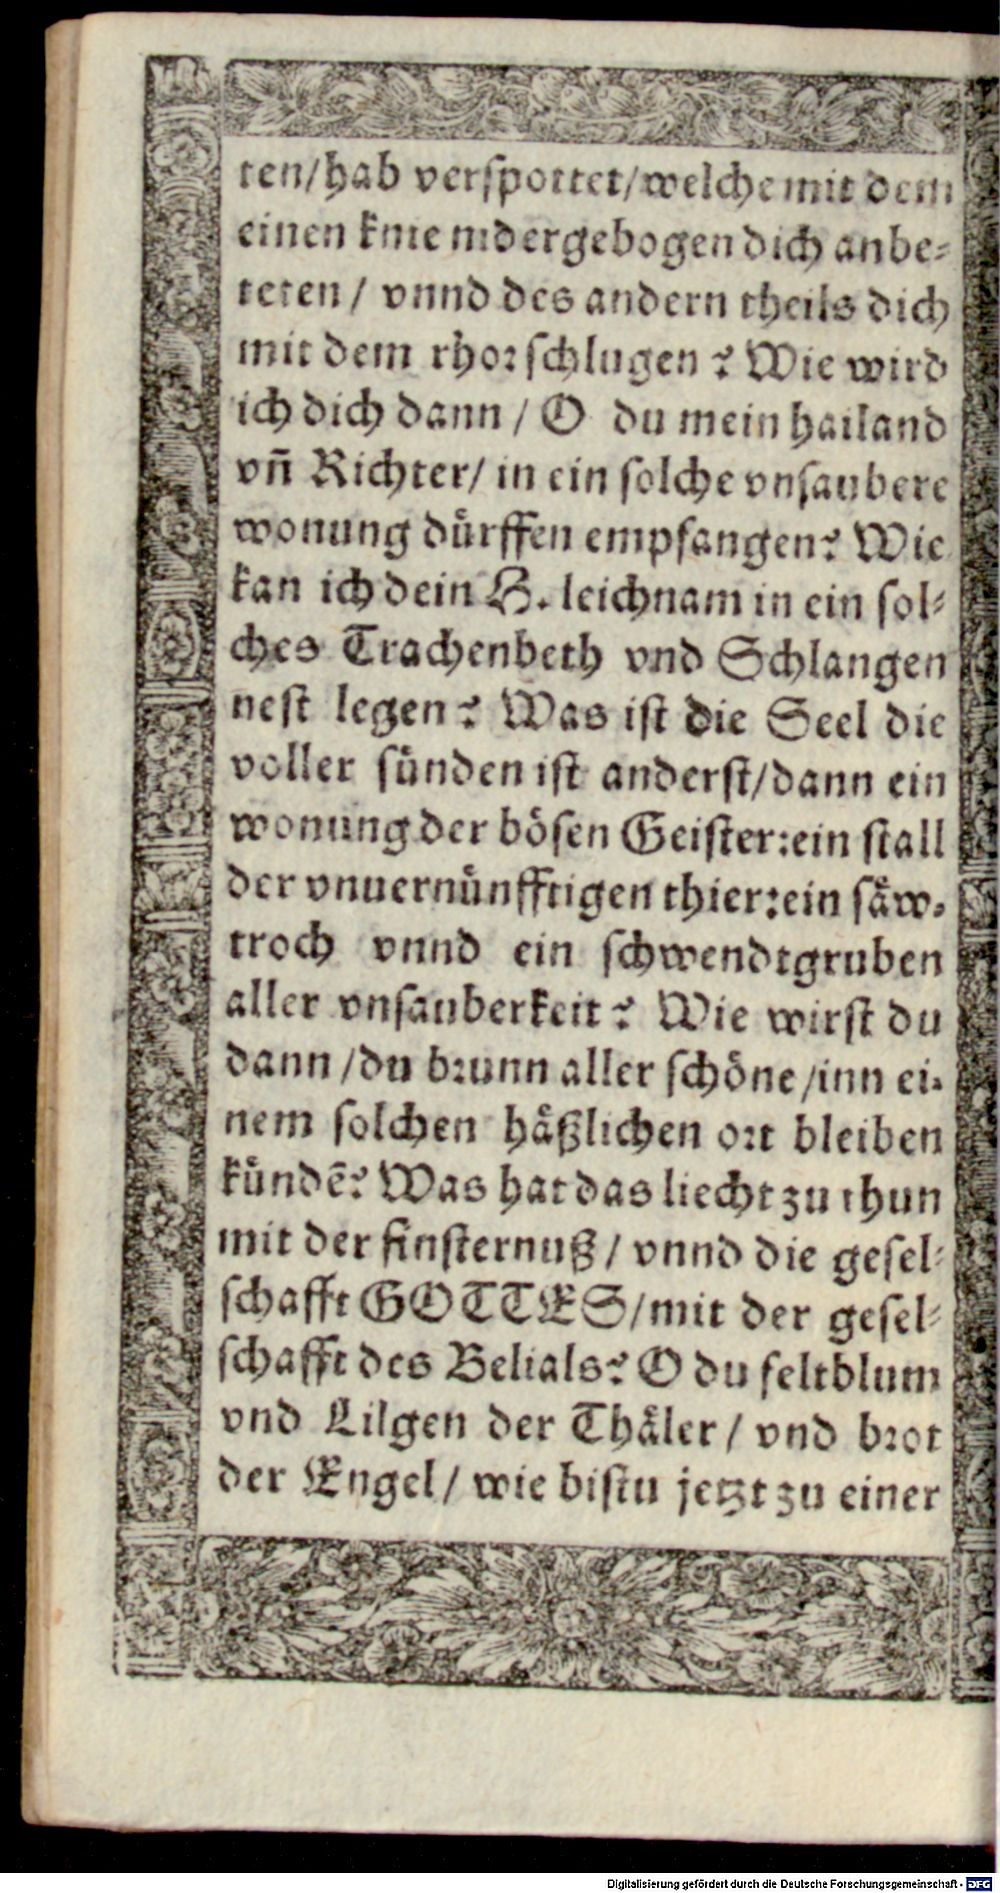 ten/hab verspottet/welche mit dem
einen knie nidergebogen dich anbe⸗
teten / vnnd des andern theils dich
mit dem rhor schlugen? Wie wird
ich dich dann / O du mein hailand
vñ Richter/ in ein solche vnsaubere
wonung dürffen empfangen? Wie
kan ich dein H. leichnam in ein sol⸗
ches Trachenbeth vnd Schlangen
nest legen? Was ist die Seel die
voller sünden ist anderst/dann ein
wonung der bösen Geister:ein stall
der vnuernünfftigen thier:ein säw⸗
troch vnnd ein schwendtgruben
aller vnsauberkeit? Wie wirst du
dann /du brunn aller schöne/inn ei⸗
nem solchen häßlichen ort bleiben
kündē? Was hat das liecht zu thun
mit der finsternuß / vnnd die gesel⸗
schafft GOTTES/mit der gesel⸗
schafft des Belials? O du feltblum
vnd Lilgen der Thäler / vnd brot
der Engel / wie bistu jetzt zu einer
Digitalisierung gefördert durch die Deutsche Forschungsgemeinschaft - DFG